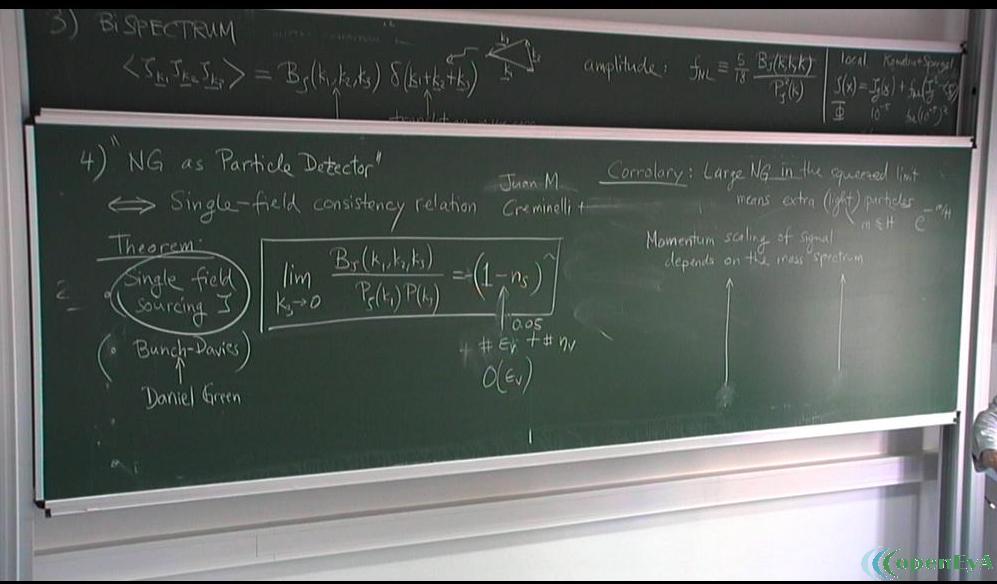 3) BISPECTRUM
<ζ_k1 ζ_k2 ζ_k3> = B_ζ(k1,k2,k3) δ(k1+k2+k3)
amplitude: f_NL ≡ 5/18 B_ζ(k,k,k)/P_ζ²(k)
local
4) "NG as Particle Detector"
⇔ Single-field consistency relation
Juan M
Creminelli +
Theorem:
• Single field
sourcing ζ
(• Bunch-Davies)
↑
Daniel Green
lim k3→0 B_ζ(k1,k2,k3)/P_ζ(k1)P(k3) = (1-ns)
0.05
+ # εv + # ηv
O(εv)
Corrolary: Large NG in the squeezed limit
means extra (light) particles
m ≲ H
e^-m/H
Momentum scaling of signal
depends on the mass spectrum
openEyA